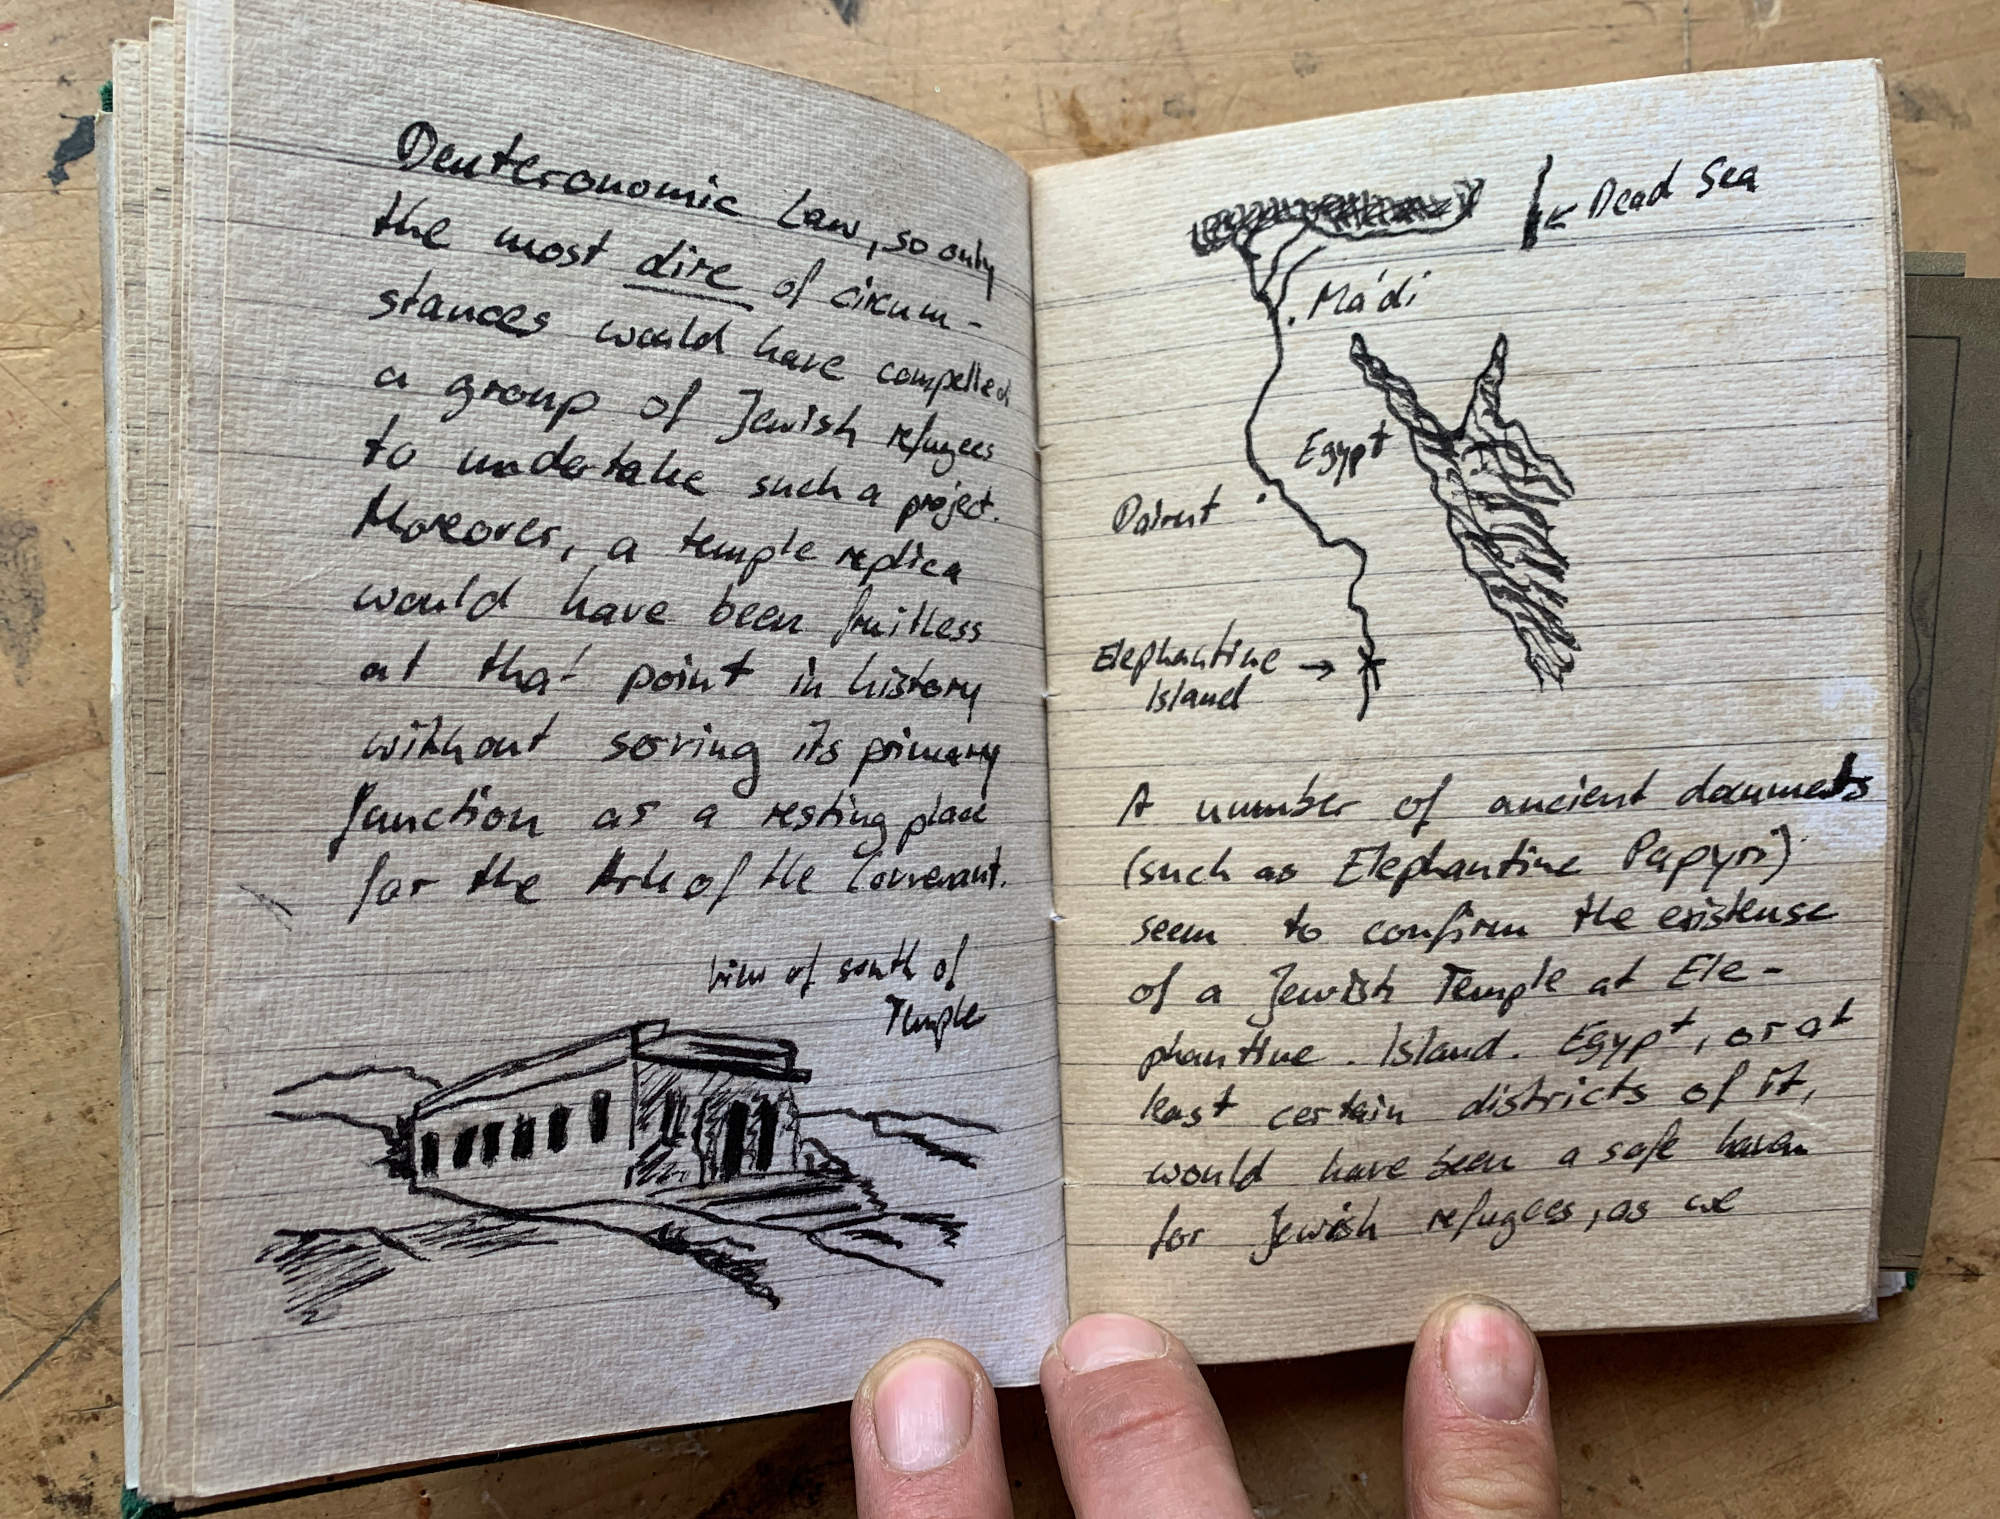 Deuteronomic Law, so only
the most dire of circum-
stances would have compelled
a group of Jewish refugees
to undertake such a project.
Moreover, a temple replica
would have been fruitless
at that point in history
without serving its primary
function as a resting place
for the Ark of the Covenant.
View of south of
Temple
Dead Sea
Ma'di
Egypt
Dairut
Elephantine
Island
A number of ancient documents
(such as Elephantine Papyri)
seem to confirm the existense
of a Jewish Temple at Ele-
phantine. Island. Egypt, or at
least certain districts of it,
would have been a safe haven
for Jewish refugees, as we